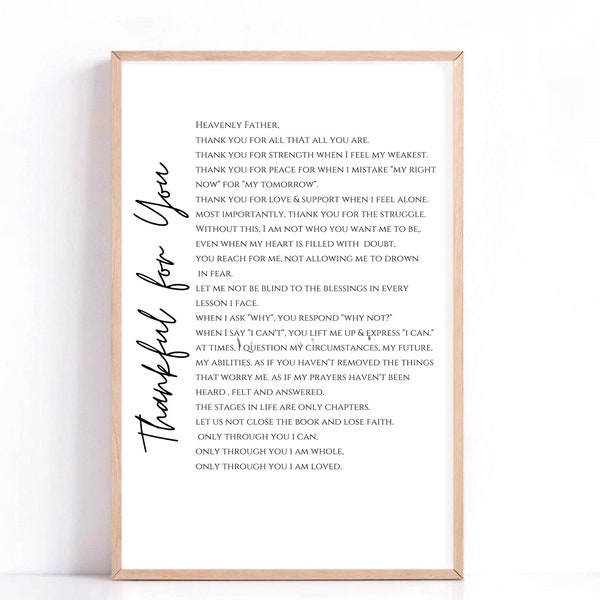 Thankful for You
Heavenly Father,
thank you for all that all you are.
thank you for strength when I feel my weakest.
thank you for peace for when i mistake "my right
now" for "my tomorrow".
thank you for love & support when i feel alone.
most importantly, thank you for the struggle.
Without this, I am not who you want me to be,.
even when my heart is filled with doubt,
you reach for me, not allowing me to drown
in fear.
let me not be blind to the blessings in every
lesson i face.
when i ask "why", you respond "why not?"
when I say "i can't", you lift me up & express "i can."
at times, I question my circumstances, my future,
my abilities, as if you haven't removed the things
that worry me. as if my prayers haven't been
heard , felt and answered.
the stages in life are only chapters.
let us not close the book and lose faith.
only through you i can,
only through you i am whole,
only through you i am loved.